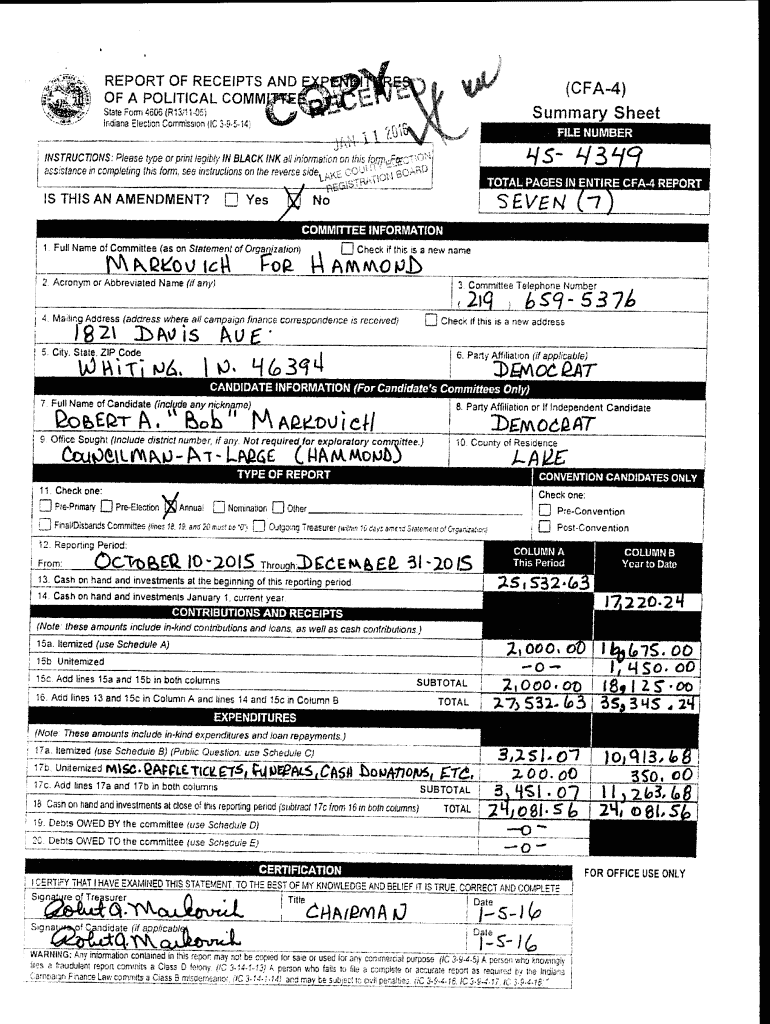 REPORT OF RECEIPTS AND EXPENDITURES
OF A POLITICAL COMMITTEE
State Form 4606 (R13/11-05)
Indiana Election Commission (IC 3-9-5-14)
COPY
RECEIVED
JAN 11 2016
LAKE COUNTY ELECTION
REGISTRATION BOARD
(CFA-4)
Summary Sheet
FILE NUMBER
45-4349
TOTAL PAGES IN ENTIRE CFA-4 REPORT
SEVEN (7)
INSTRUCTIONS: Please type or print legibly IN BLACK INK all information on this form. For
assistance in completing this form, see instructions on the reverse side.
IS THIS AN AMENDMENT? Yes X No
COMMITTEE INFORMATION
1. Full Name of Committee (as on Statement of Organization) Check if this is a new name
MARKOVICH FOR HAMMOND
2. Acronym or Abbreviated Name (if any)
3. Committee Telephone Number
(219) 659-5376
4. Mailing Address (address where all campaign finance correspondence is received) Check if this is a new address
1821 DAVIS AVE.
5. City, State, ZIP Code
WHITING, IN. 46394
6. Party Affiliation (if applicable)
DEMOCRAT
CANDIDATE INFORMATION (For Candidate's Committees Only)
7. Full Name of Candidate (include any nickname)
ROBERT A. "Bob" MARKOVICH
8. Party Affiliation or If Independent Candidate
DEMOCRAT
9. Office Sought (Include district number, if any. Not required for exploratory committee.)
COUNCILMAN-AT-LARGE (HAMMOND)
10. County of Residence
LAKE
TYPE OF REPORT
CONVENTION CANDIDATES ONLY
11. Check one:
Pre-Primary Pre-Election X Annual Nomination Other
Final/Disbands Committee (lines 18, 19, and 20 must be "0") Outgoing Treasurer (within 10 days amend Statement of Organization)
Check one:
Pre-Convention
Post-Convention
12. Reporting Period:
From: OCTOBER 10-2015 Through: DECEMBER 31-2015
COLUMN A
This Period
COLUMN B
Year to Date
13. Cash on hand and investments at the beginning of this reporting period 25,532.63
14. Cash on hand and investments January 1, current year 17,220.24
CONTRIBUTIONS AND RECEIPTS
(Note: these amounts include in-kind contributions and loans, as well as cash contributions.)
15a. Itemized (use Schedule A) 2,000.00 16,675.00
15b. Unitemized -0- 1,450.00
15c. Add lines 15a and 15b in both columns SUBTOTAL 2,000.00 18,125.00
16. Add lines 13 and 15c in Column A and lines 14 and 15c in Column B TOTAL 27,532.63 35,345.24
EXPENDITURES
(Note: These amounts include in-kind expenditures and loan repayments.)
17a. Itemized (use Schedule B) (Public Question, use Schedule C) 3,251.07 10,913.68
17b. Unitemized MISC. RAFFLE TICKETS, FUNERALS, CASH DONATIONS, ETC. 200.00 350.00
17c. Add lines 17a and 17b in both columns SUBTOTAL 3,451.07 11,263.68
18. Cash on hand and investments at close of this reporting period (subtract 17c from 16 in both columns) TOTAL 24,081.56 24,081.56
19. Debts OWED BY the committee (use Schedule D) -0-
20. Debts OWED TO the committee (use Schedule E) -0-
CERTIFICATION
FOR OFFICE USE ONLY
I CERTIFY THAT I HAVE EXAMINED THIS STATEMENT. TO THE BEST OF MY KNOWLEDGE AND BELIEF IT IS TRUE, CORRECT AND COMPLETE
Signature of Treasurer Title Date
Robert A. Markovich CHAIRMAN 1-5-16
Signature of Candidate (if applicable) Date
Robert A. Markovich 1-5-16
WARNING: Any information contained in this report may not be copied for sale or used for any commercial purpose. (IC 3-9-4-5) A person who knowingly
files a fraudulent report commits a Class D felony. (IC 3-14-1-13) A person who fails to file a complete or accurate report as required by the Indiana
Campaign Finance Law commits a Class B misdemeanor, (IC 3-14-1-14) and may be subject to civil penalties. (IC 3-9-4-16, IC 3-9-4-17, IC 3-9-4-18)